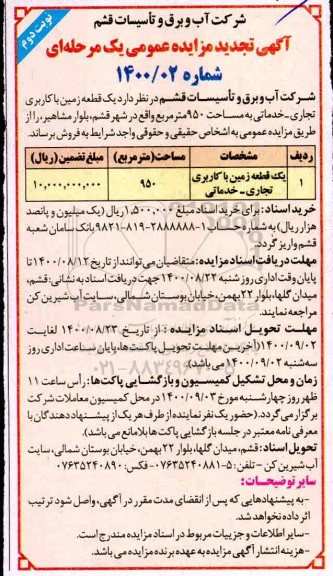 نوبت دوم
شرکت آب و برق و تأسیسات قشم
آگهی تجدید مزایده عمومی یک مرحله‌ای
شماره ۱۴۰۰/۰۲
شرکت آب و برق و تأسیسات قشم در نظر دارد یک قطعه زمین با کاربری
تجاری - خدماتی به مساحت ۹۵۰ متر مربع واقع در شهر قشم، بلوار مشاهیر، را از
طریق مزایده عمومی به اشخاص حقیقی و حقوقی واجد شرایط به فروش برساند.
ردیف مشخصات مساحت (متر مربع) مبلغ تضمین (ریال)
۱ یک قطعه زمین با کاربری تجاری - خدماتی ۹۵۰ ۱۰,۰۰۰,۰۰۰,۰۰۰
خرید اسناد: برای خرید اسناد مبلغ ۱,۵۰۰,۰۰۰ ریال (یک میلیون و پانصد
هزار ریال) به شماره حساب ۱-۲۸۸۸۸۸۸-۸۱۹-۹۸۲۱ بانک سامان شعبه
قشم واریز گردد.
مهلت دریافت اسناد مزایده: متقاضیان می‌توانند از تاریخ ۱۴۰۰/۰۸/۱۲ تا
پایان وقت اداری روز شنبه ۱۴۰۰/۰۸/۲۲ جهت دریافت اسناد به نشانی: قشم،
میدان گلها، بلوار ۲۲ بهمن، خیابان بوستان شمالی، سایت آب شیرین کن
مراجعه نمایند.
مهلت تحویل اسناد مزایده: از تاریخ ۱۴۰۰/۰۸/۲۳ لغایت
۱۴۰۰/۰۹/۰۲ (آخرین مهلت تحویل پاکت‌ها، پایان ساعت اداری روز
سه‌شنبه ۱۴۰۰/۰۹/۰۲ می باشد).
زمان و محل تشکیل کمیسیون و بازگشایی پاکت‌ها: رأس ساعت ۱۱
ظهر روز چهارشنبه مورخ ۱۴۰۰/۰۹/۰۳ در محل کمیسیون معاملات شرکت
برگزار می گردد. (حضور یک نفر نماینده از طرف هر یک از پیشنهاد دهندگان با
معرفی نامه معتبر در جلسه بازگشایی پاکت ها بلامانع می باشد).
تحویل اسناد: قشم، میدان گلها، بلوار ۲۲ بهمن، خیابان بوستان شمالی، سایت
آب شیرین کن - تلفن: ۵-۰۷۶۳۵۲۴۰۸۸۱ فکس: ۰۷۶۳۵۲۴۰۸۹۰
سایر توضیحات:
- به پیشنهادهایی که پس از انقضای مدت مقرر در آگهی، واصل شود ترتیب
اثر داده نخواهد شد.
- سایر اطلاعات و جزییات مربوط در اسناد مزایده مندرج است.
- هزینه انتشار آگهی مزایده به عهده برنده مزایده می باشد.